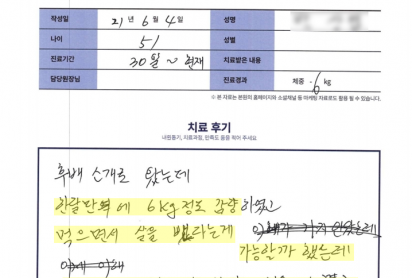 작성일 21년 6월 4일 성명
나이 51 성별
진료기간 30일 ~ 현재 치료받은 내용
담당원장님 진료경과 체중 -6 kg
※ 본 자료는 본원의 홈페이지와 소셜채널 등 마케팅 자료로도 활용 될 수 있습니다.
치료 후기
내원동기, 치료과정, 만족도 등을 적어 주세요
후배 소개로 왔는데
한달반만에 6kg정도 감량하였고
먹으면서 살을 뺀다는게
가능할까 했는데